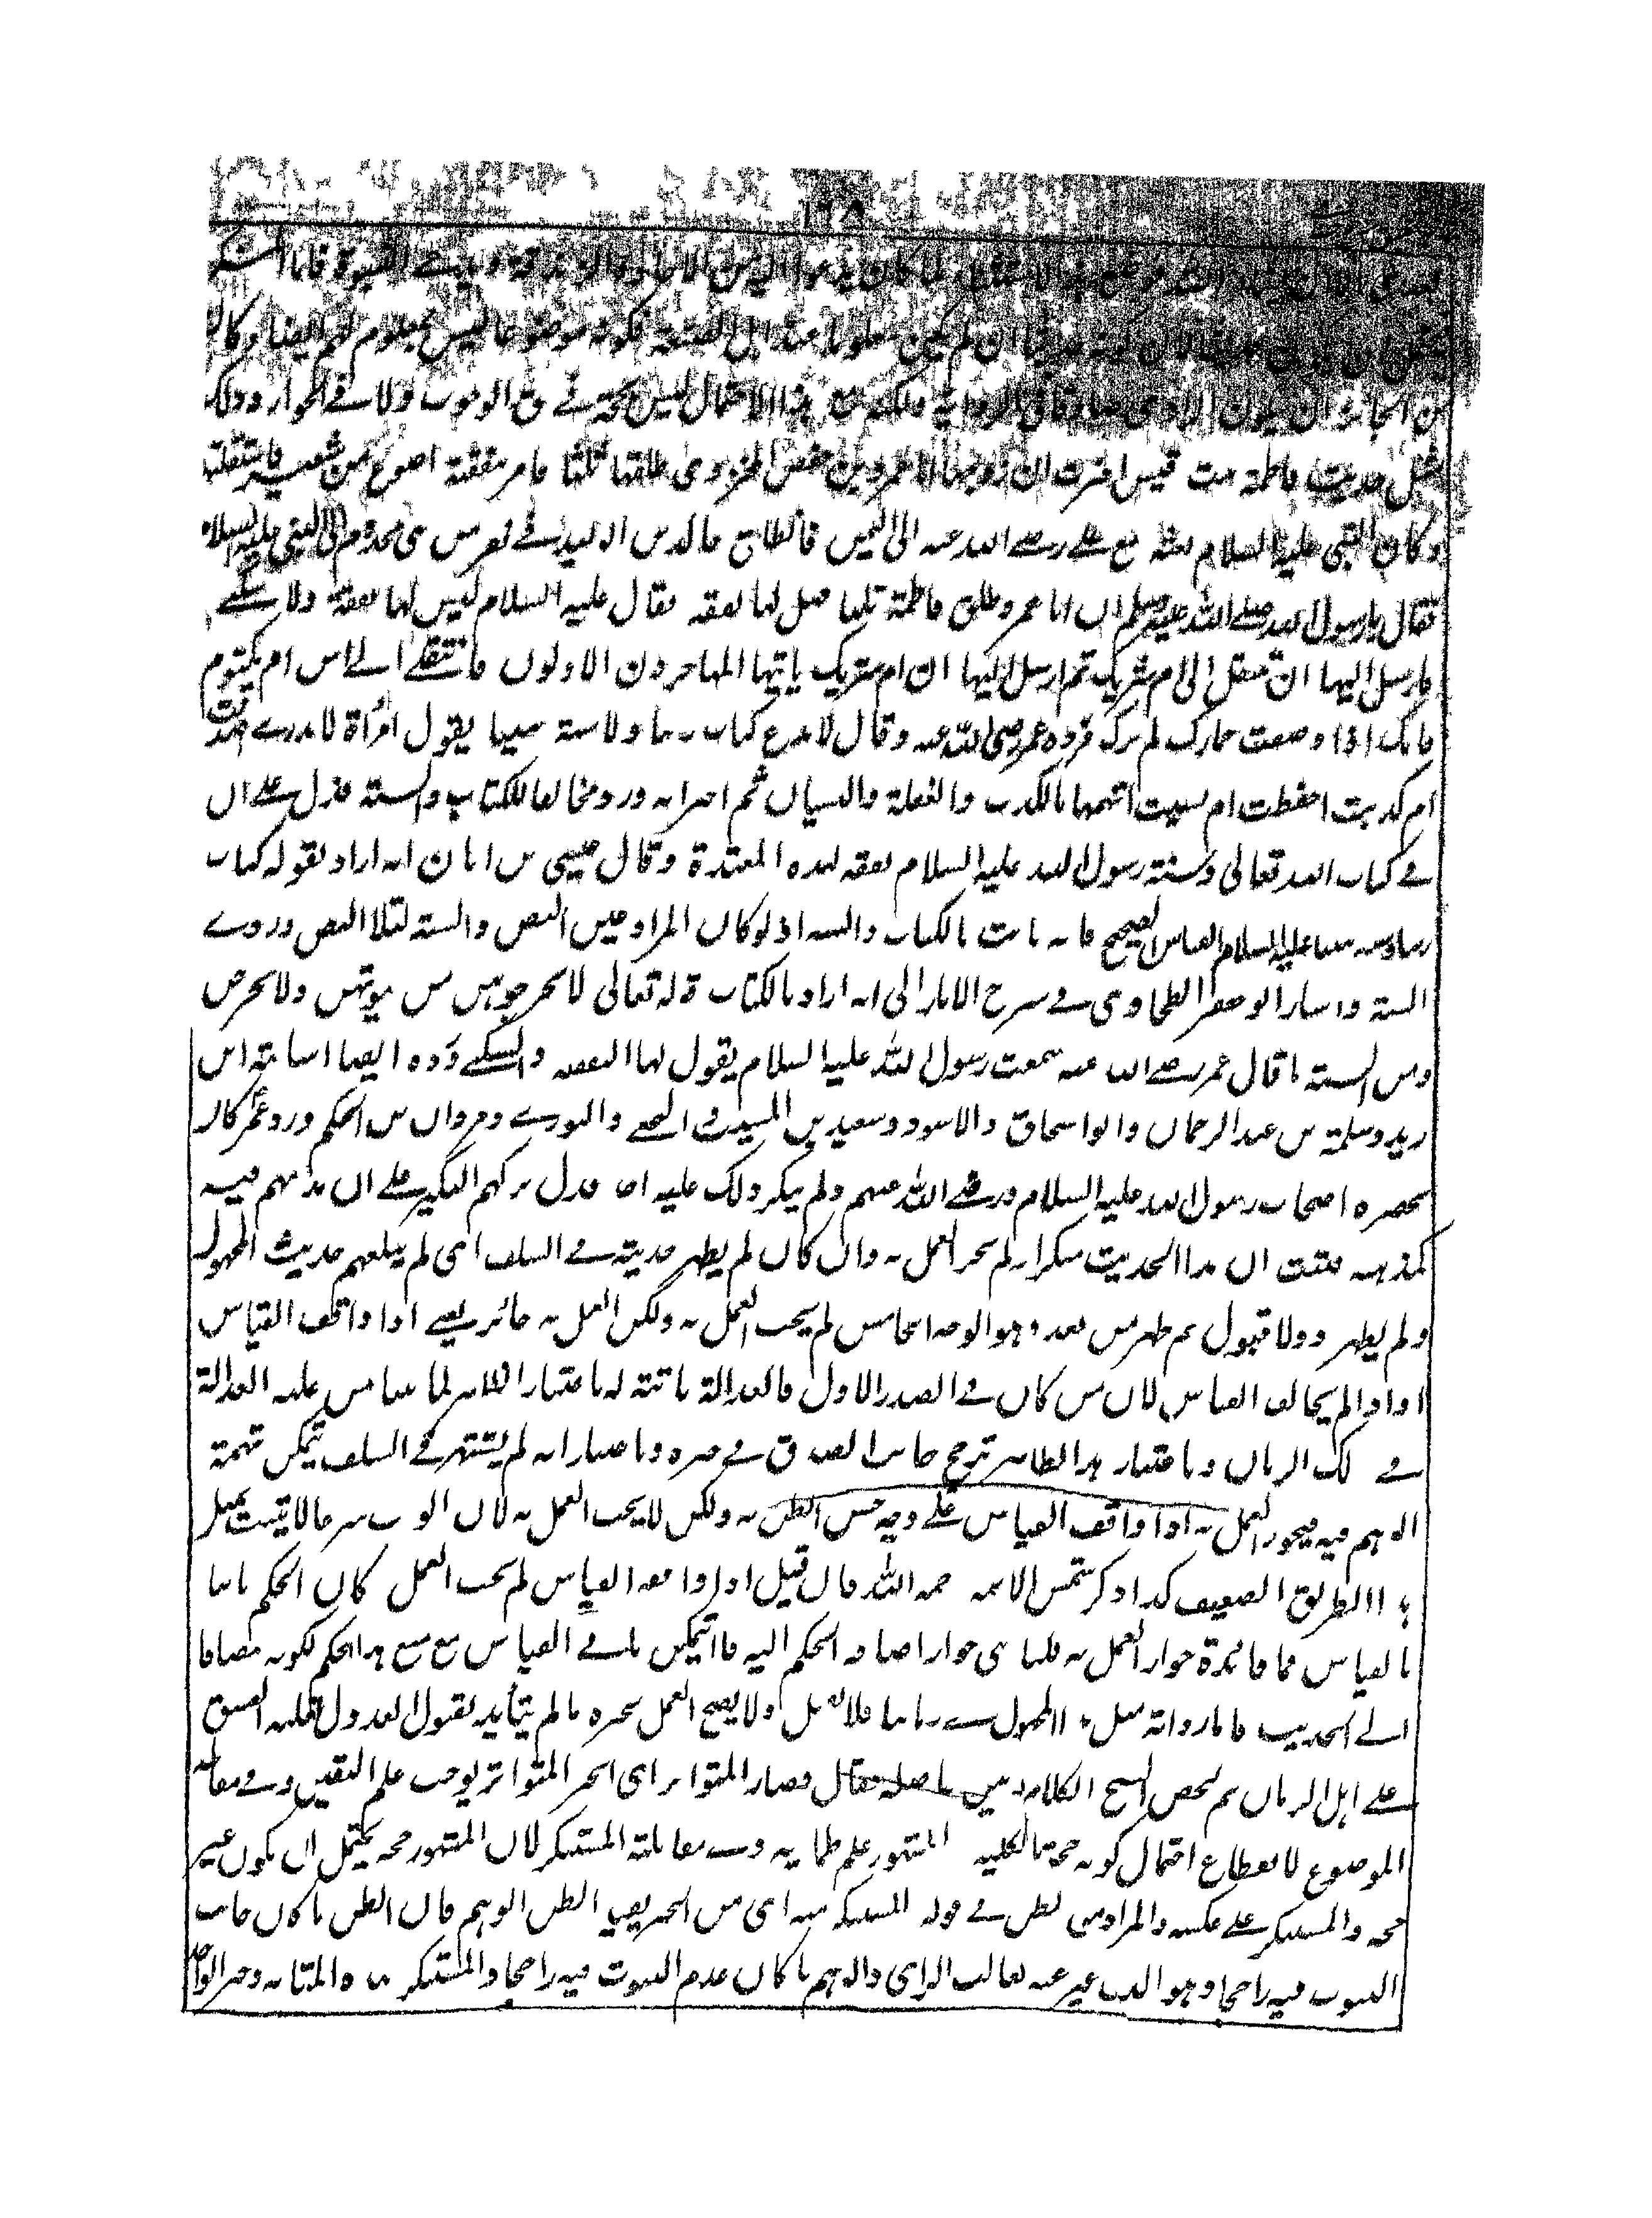 من الجائز ان يكون الراوى صادقا فى الرواية ولكنه مع هذا الاحتمال ليس بحجة فى حق الوجوب ولا فى الجواز وذلك
مثل حديث فاطمة بنت قيس اخبرت ان زوجها ابا عمرو بن حفص المخزومى طلقها ثلثا فامر بنفقة اصوع من شعير فاستقلتها
وكان النبى عليه السلام بعثه مع على رضے الله عنه الى اليمن فانطلق خالد بن الوليد فى نفر من بنى مخزوم الى النبى عليه السلام
فقال يا رسول الله صلے الله عليه وسلم ان ابا عمرو طلق فاطمة ثلثا فهل لها نفقة فقال عليه السلام ليس لها نفقة ولا سكنے
فارسل اليها ان تنتقل الى ام شريك ثم ارسل اليها ان ام شريك ياتيها المهاجرون الاولون فانتقلے الے ابن ام مكتوم
فانك اذا وضعت خمارك لم يرك فرده عمر رضى الله عنه وقال لا ندع كتاب ربنا ولا سنة نبينا بقول امرأة لا ندرے اصدقت
ام كذبت احفظت ام نسيت اتهمها بالكذب والغفلة والنسيان ثم اخبر انه ورد مخالفا للكتاب والسنة فدل علے ان
فے كتاب الله تعالى وسنة رسول الله عليه السلام نفقة لهذه المعتدة وقال عيسى بن ابان انه اراد بقوله كتاب
ربنا وسنة نبينا عليه السلام القياس الصحيح فانه ثابت بالكتاب والسنة اذ لو كان المراد عين النص والسنة لتلا النص وروے
السنة واشار ابو جعفر الطحاوى فے شرح الاثار الى انه اراد بالكتاب قوله تعالى لا تخرجوهن من بيوتهن ولا يخرجن
ومن السنة ما قال عمر رضے الله عنه سمعت رسول الله عليه السلام يقول لها النفقة والسكنے ورده ايضا اسامة بن
زيد وسلمة بن عبد الرحمان وابو اسحاق والاسود وسعيد بن المسيب والنخعے والثورے ومروان بن الحكم ورد عمر كان
بحضرة اصحاب رسول الله عليه السلام ورضے الله عنهم ولم ينكر ذلك عليه احد فدل تركهم النكير علے ان مذهبهم فيه
كمذهبه فثبت ان هذا الحديث مستنكر لم يجز العمل به وان كان لم يظهر حديثه فے السلف اى لم يبلغهم حديث المجهول
ولم يظهر رد ولا قبول ثم ظهر من بعد وهو الوجه الخامس لم يجب العمل به ولكن العمل به جائز يعنے اذا وافق القياس
او اذا لم يخالف القياس لان من كان فے الصدر الاول فالعدالة ثابتة له باعتبار الظاهر لما بينا من غلبة العدالة
فے ذلك الزمان وباعتبار هذا الظاهر ترجح جانب الصدق فے خبره وباعتبار انه لم يشتهر فے السلف تمكن تهمة
الوهم فيه فيجوز العمل به اذا وافق القياس علے وجه حسن الظن به ولكن لا يجب العمل به لان الوجوب شرعا لا يثبت بمثل
هذا الطريق الضعيف كذا ذكر شمس الائمة رحمه الله فان قيل اذا وافقه القياس لم يجب العمل كان الحكم ثابتا
بالقياس فما فائدة جواز العمل به قلنا هى جواز اضافة الحكم اليه فلا يتمكن نافے القياس من منع هذا الحكم لكونه مضافا
الے الحديث فاما رواية مثل هذا المجهول فے زماننا فلا تقبل ولا يصح العمل بخبره ما لم يتأيد بقبول العدول لغلبة الفسق
علے اهل الزمان ثم لخص الشيخ الكلام وبين حاصله فقال فصار المتواتر اى الخبر المتواتر يوجب علم اليقين وفے مقابلته
الموضوع لانقطاع احتمال كونه حجة بالكلية والمشهور علم طمانية وفے مقابلته المستنكر لان المشهور حجة يحتمل ان يكون غير
حجة والمستنكر علے عكسه والمراد من الظن فے قوله المستنكر منه اى من الخبر يفيد الظن الوهم فان الظن ما كان جانب
الثبوت فيه راجحا وهو الذى عبر عنه بغالب الراى والوهم ما كان عدم الثبوت فيه راجحا والمستنكر بهذه المثابة وخبر الواحد